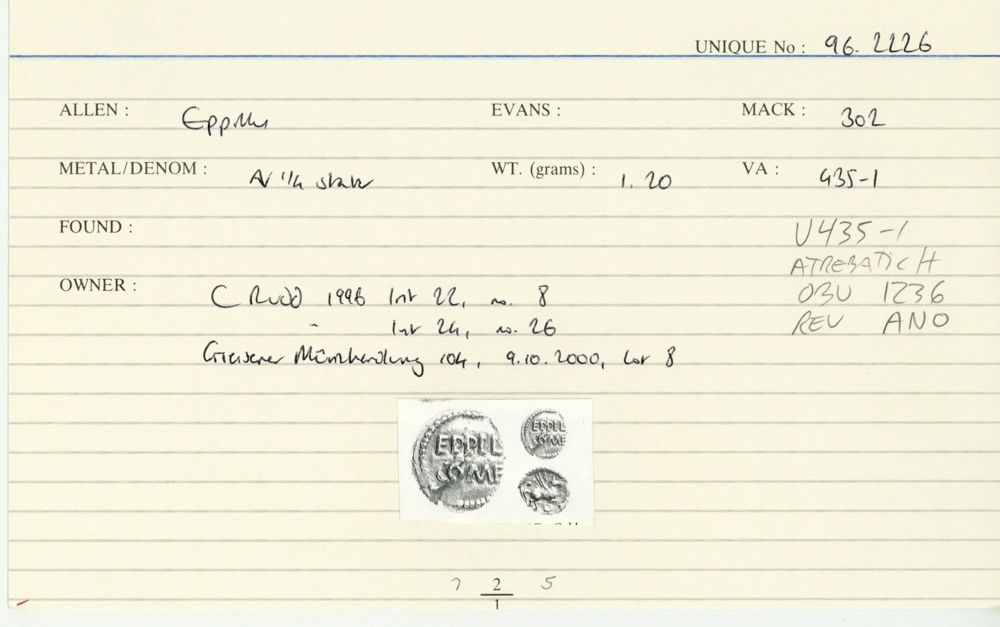 UNIQUE No : 96. 2226
ALLEN : Eppillus EVANS : MACK : 302
METAL/DENOM : AV 1/4 stater WT. (grams) : 1.20 VA : 435-1
FOUND :
V435-1
ATREBATIC H
OWNER : C Rudd 1996 List 22, no. 8
OBV 1236
" List 24, no. 26
REV ANO
Giessener Münzhandlung 104, 9.10.2000, Lot 8
EPPILL
COME
EPPILL
COME
7 2 5
1